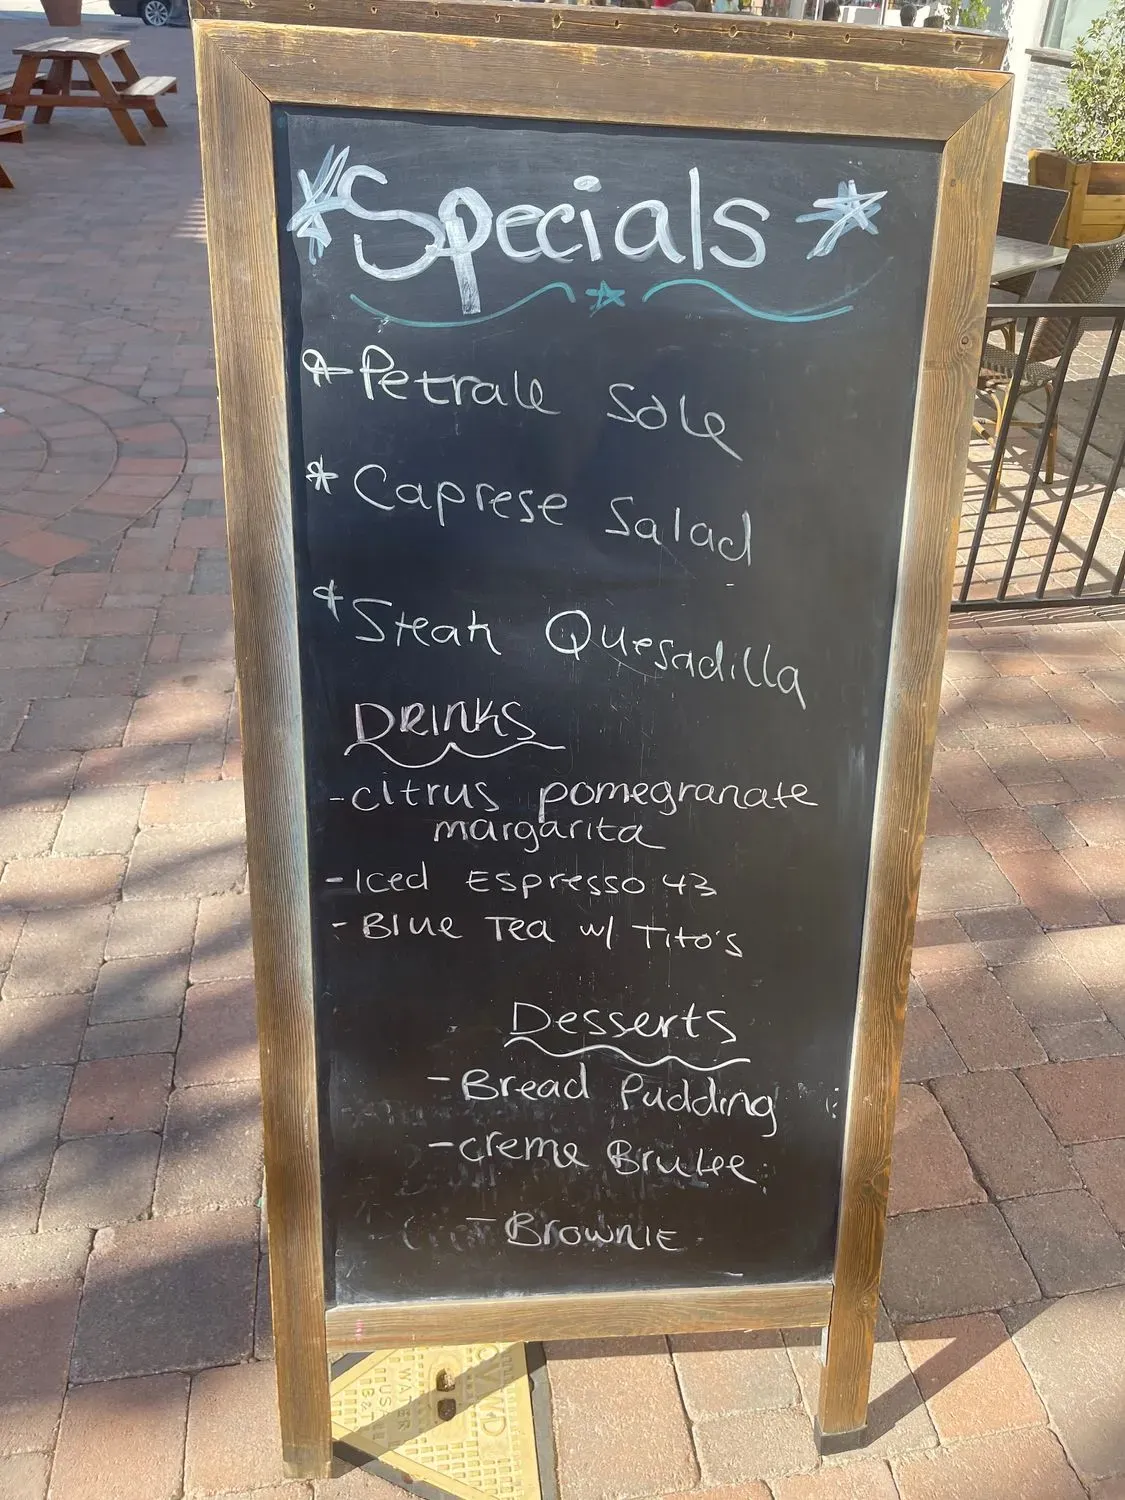 *Specials*
*Petrale Sole
*Caprese Salad
*Steak Quesadilla
DRINKS
-citrus pomegranate
margarita
-Iced Espresso 43
-Blue Tea w/ Tito's
Desserts
-Bread Pudding
-creme Brulee
-Brownie
WATER
USA
B&T